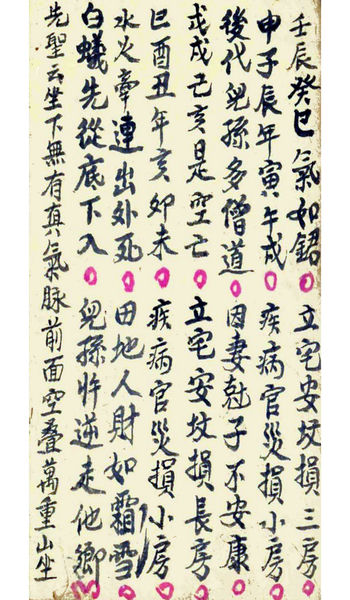 壬辰癸巳氣如鋁○立宅安坟損三房○
申子辰年寅午戌○疾病官災損小房○
後代兒孫多僧道○因妻尅子不安康○
戊戌己亥是空亡○立宅安坟損長房○
巳酉丑年亥卯未○疾病官災損小房○
水火牽連出外死○田地人財如霜雪○
白蟻先從底下入○兒孫忤逆走他鄉○
先聖云坐下無有真氣脉前面空叠萬重山坐